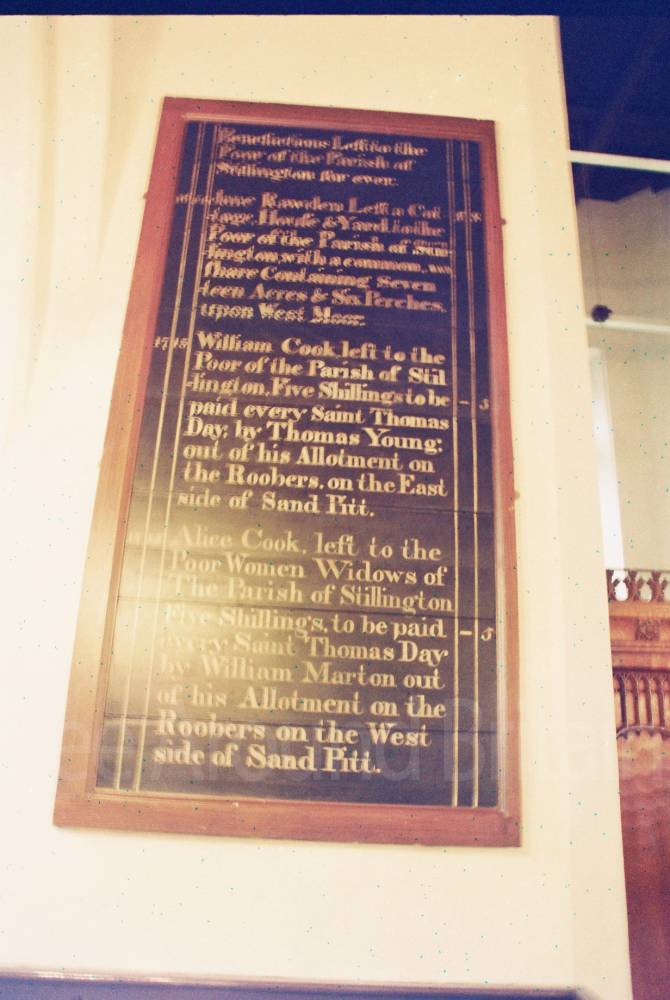 Benefactions Left to the
Poor of the Parish of
Stillington for ever.
Jane Rawden Left a Cot
tage, House & Yard to the
Poor of the Parish of Stil
lington, with a common,
share Containing Seven
teen Acres & Six Perches,
upon West Moor.
1715 William Cook left to the
Poor of the Parish of Stil
lington, Five Shillings to be - 5
paid every Saint Thomas
Day; by Thomas Young;
out of his Allotment on
the Roobers, on the East
side of Sand Pitt.
Alice Cook, left to the
Poor Women Widows of
The Parish of Stillington
Five Shillings, to be paid - 5
every Saint Thomas Day
by William Marton out
of his Allotment on the
Roobers on the West
side of Sand Pitt.